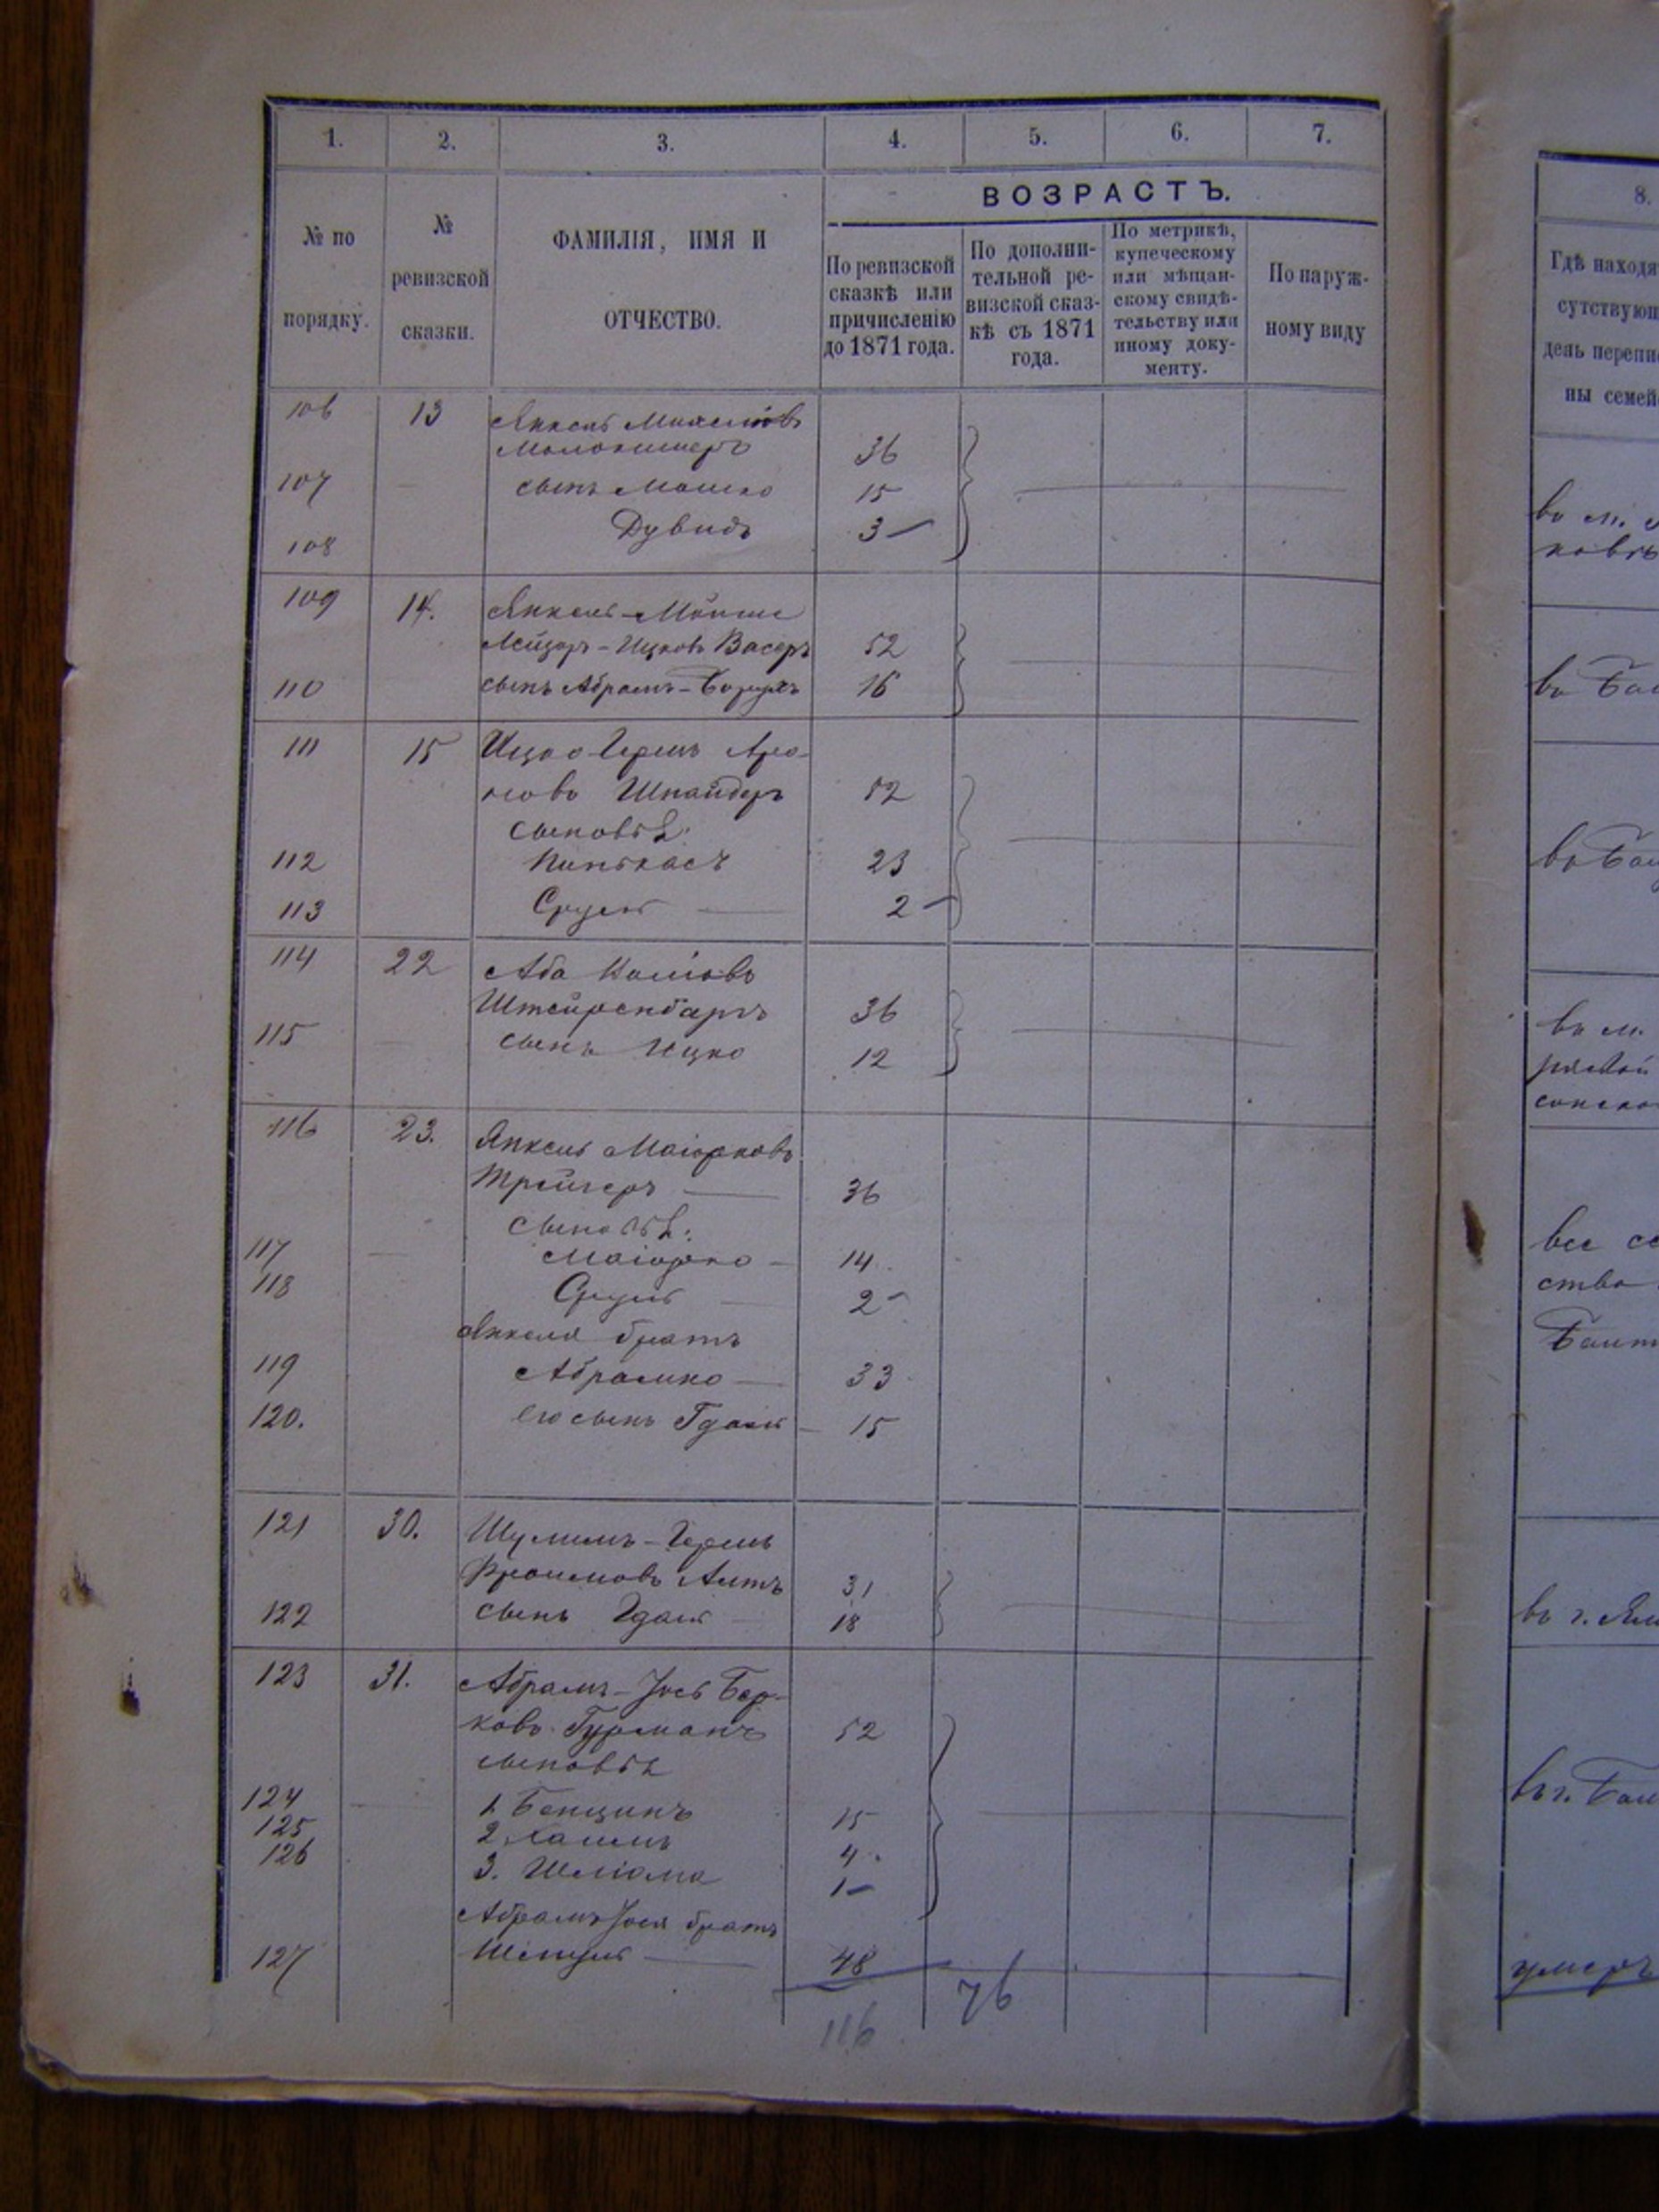 1. 2. 3. 4. 5. 6. 7.
ВОЗРАСТЪ.
№ по порядку.
№ ревизской сказки.
ФАМИЛІЯ, ИМЯ И ОТЧЕСТВО.
По ревизской сказкѣ или причисленію до 1871 года.
По дополнительной ревизской сказкѣ съ 1871 года.
По метрикѣ, купеческому или мѣщанскому свидѣтельству или иному документу.
По наружному виду
106 13 Янкель
36
107 сынъ Мошко 15
108 Дувидъ 3
109 14. Янкель-Мойше
Лейзоръ-Ицковъ Васеръ 52
110 сынъ Абрамъ-Борухъ 16
111 15 Ицко Гершъ Аро-
новъ Шнайдеръ 52
сыновья:
112 Пинькасъ 23
113 Сруль 2
114 22 Аба
Штейренбергъ 36
115 сынъ Ицко 12
116 23. Янкель Маіорковъ
Трейгеръ 36
сыновья:
117 Маіорко 14
118 Сруль 2
Янкеля братъ
119 Абрамко 33
120. его сынъ Гдаль 15
121 30. Шулимъ-Гершъ
Фроимовъ 31
122 сынъ Гдаль 18
123 31. Абрамъ-Іось Бер-
ковъ Гурманъ 52
сыновья
124 1. Бенціонъ 15
125 2. Хаимъ 4
126 3. Шліома 1
Абрамъ Іося братъ
127 48
116 76
8.
Гдѣ находя
сутствую
день перепи
ны семей
въ м.
въ
въ
въ м.
все
ство
въ г.
въ г.
умеръ